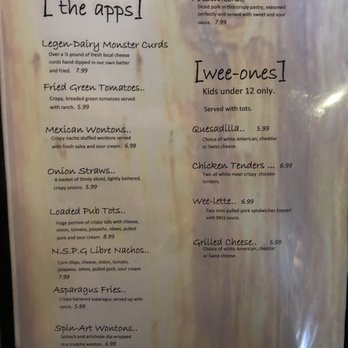 [the apps]
Legen-Dairy Monster Curds
Over a ½ pound of fresh local cheese
curds hand dipped in our own batter
and fried. 7.99
Fried Green Tomatoes..
Crispy, breaded green tomatoes served
with ranch. 5.99
Mexican Wontons..
Crispy nacho stuffed wontons served
with fresh salsa and sour cream. 6.99
Onion Straws..
A basket of thinly sliced, lightly battered,
crispy onions. 5.99
Loaded Pub Tots..
Huge portion of crispy tots with cheese,
onion, tomato, jalapeno, olives, pulled
pork and sour cream 8.99
N.S.P.G Libre Nachos..
Corn chips, cheese, onion, tomato,
jalapeno, olives, pulled pork, sour cream
7.99
Asparagus Fries..
Crispy battered asparagus served up with
ranch. 5.99
Spin-Art Wontons..
Spinach and artichuke dip wrapped
in a crunchy wonton. 6.99
Diced pork in this crispy pastry, seasoned
perfectly and served with sweet and sour
sauce. 7.99
[wee-ones]
Kids under 12 only.
Served with tots.
Quesadilla.. 5.99
Choice of white American, cheddar
or Swiss cheese.
Chicken Tenders ... 6.99
Two all white meat crispy chicken
tenders.
Wee-lette.. 5.99
Two mini pulled pork sandwiches topped
with BBQ sauce.
Grilled Cheese.. 5.99
Choice of white American, cheddar
or Swiss cheese.